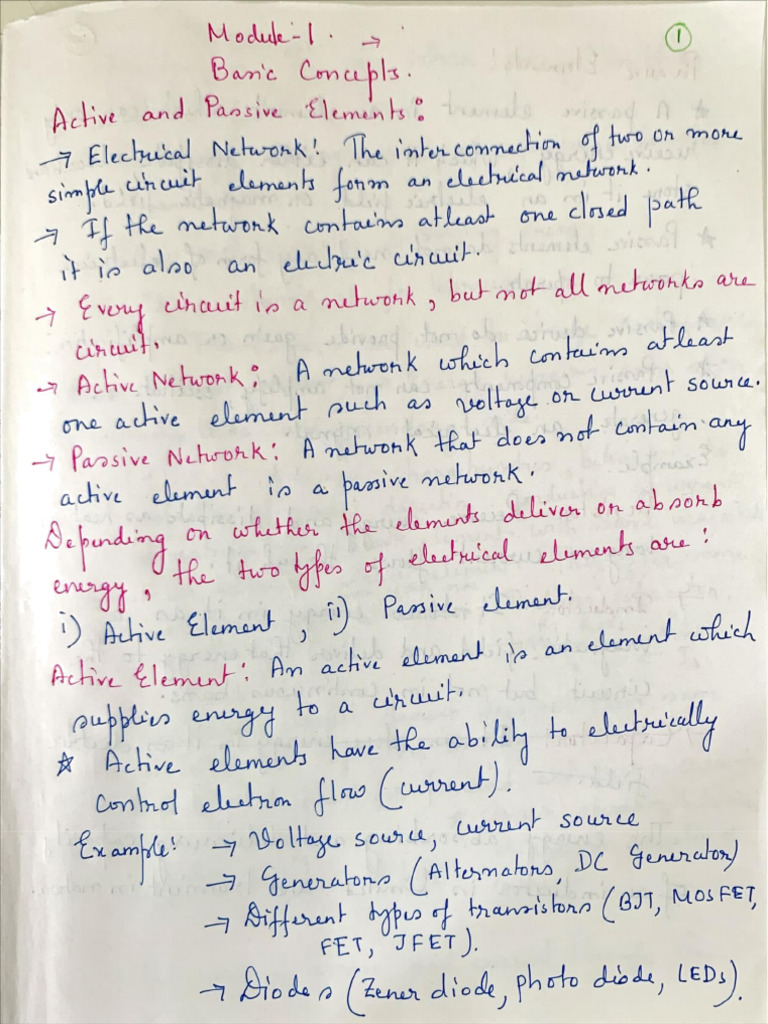 Module-1. →
①
Basic Concepts.
Active and Passive Elements:
→ Electrical Network! The interconnection of two or more
simple circuit elements form an electrical network.
→ If the network contains atleast one closed path
it is also an electric circuit.
→ Every circuit is a network, but not all networks are
circuit.
→ Active Network: A network which contains atleast
one active element such as voltage or current source.
→ Passive Network: A network that does not contain any
active element is a passive network.
Depending on whether the elements deliver or absorb
energy, the two types of electrical elements are:
i) Active Element, ii) Passive element.
Active Element: An active element is an element which
supplies energy to a circuit.
☆ Active elements have the ability to electrically
control electron flow (current).
Example: → Voltage source, current source
→ Generators (Alternators, DC Generator)
→ Different types of transistors (BJT, MOSFET,
FET, JFET).
→ Diodes (Zener diode, photo diode, LEDs).